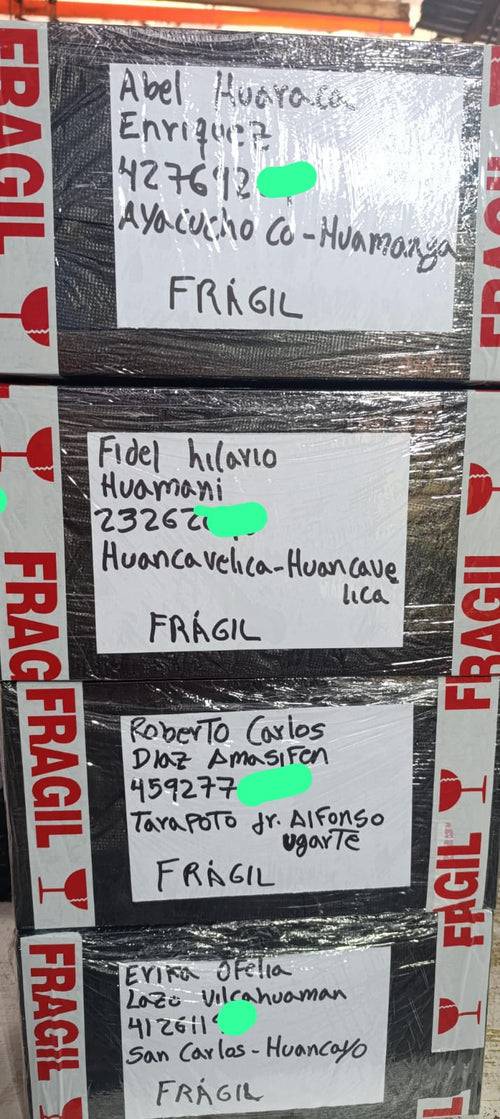 FRAGIL
FRAGIL
Abel Huaraca
Enriquez
427692
Ayacucho Co-Huamanga
FRÁGIL
Fidel hilario
Huamani
23262
Huancavelica-Huancave
lica
FRÁGIL
FRAGIL
FRAGIL
Roberto Carlos
Diaz Amasifen
459277
Tarapoto Jr. Alfonso
Ugarte
FRÁGIL
FRAGIL
FRAGIL
Erika Ofelia
Lazo Vilcahuaman
412611
San Carlos-Huancayo
FRÁGIL
FRAGIL